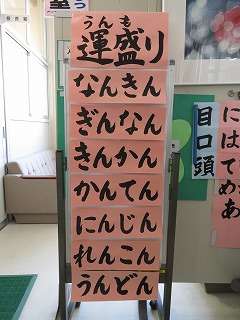 うんも
運盛り
なんきん
ぎんなん
きんかん
かんてん
にんじん
れんこん
うんどん
目口頭
にはてめあ